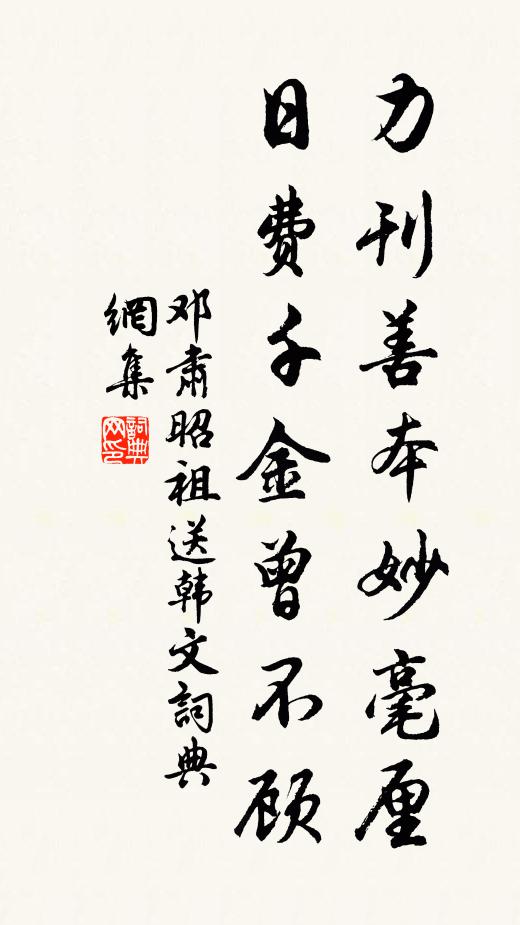 力刊善本妙毫厘
日费千金曾不顾
邓肃昭祖送韩文詞典
網集
詞典
网印